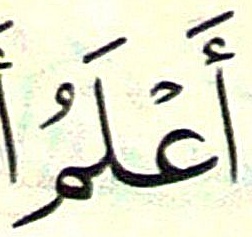 أَعْلَمُ أَ